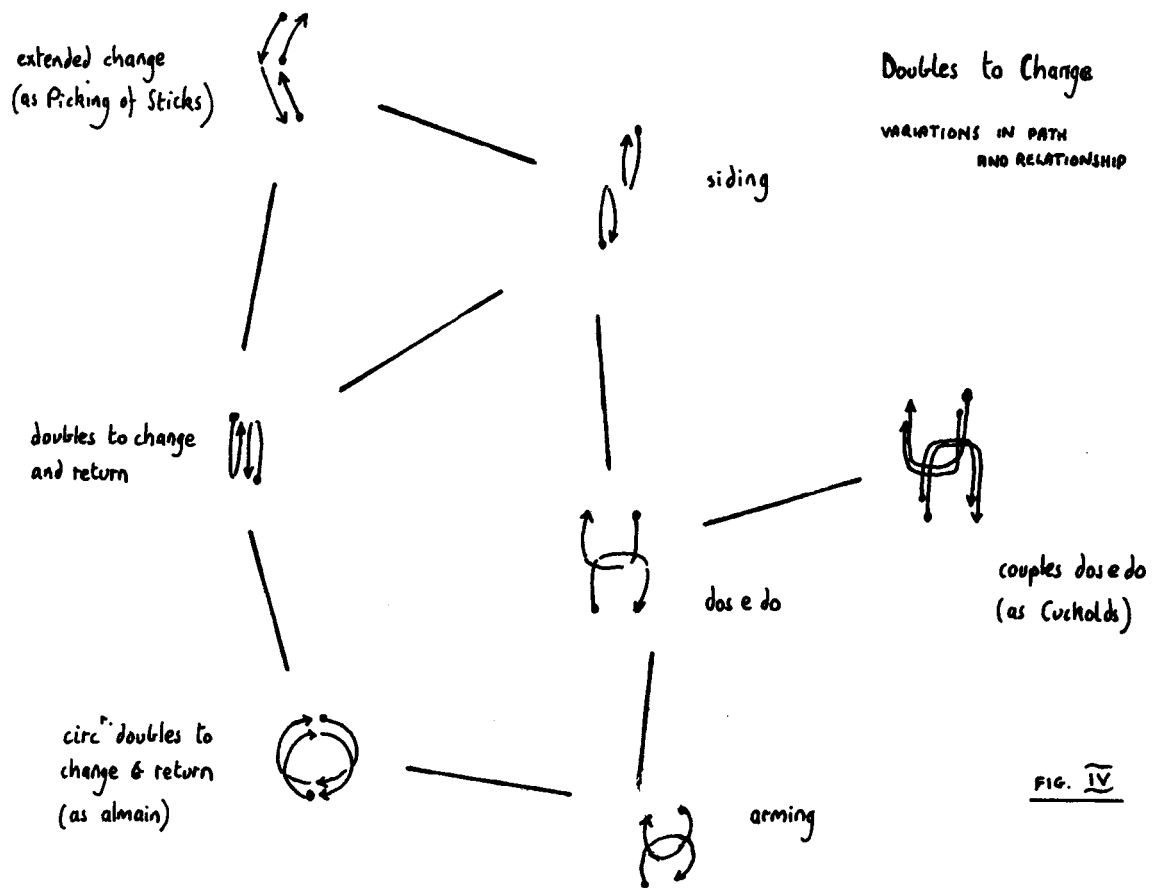 extended change
(as Picking of Sticks)
Doubles to Change
VARIATIONS IN PATH
AND RELATIONSHIP
siding
doubles to change
and return
dos e do
couples dos e do
(as Cuckolds)
circr. doubles to
change & return
(as almain)
arming
FIG. IV